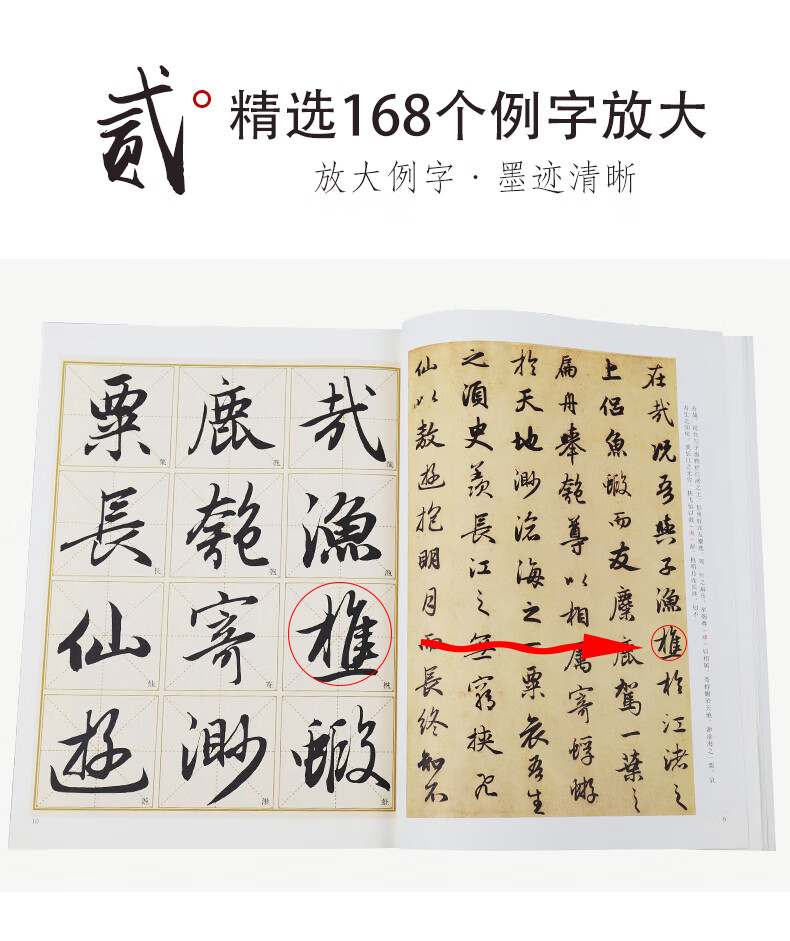 贰
精选168个例字放大
放大例字·墨迹清晰
在哉況吾與子漁樵於江渚之
上侶魚蝦而友麋鹿駕一葉之
扁舟舉匏尊以相屬寄蜉蝣
於天地渺滄海之一粟哀吾生
之須臾羨長江之無窮挾飛
仙以敖遊抱明月而長終知不
9
哉漁樵蝦
鹿匏寄渺
粟長仙遊
10